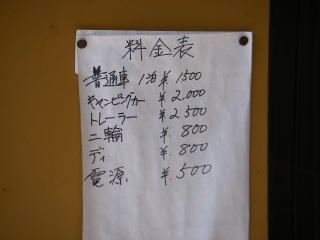 料金表
普通車 1泊 ¥1500
キャンピングカー ¥2,000
トレーラー ¥2500
二輪 ¥.800
ディ ¥.800
電源. ¥.500